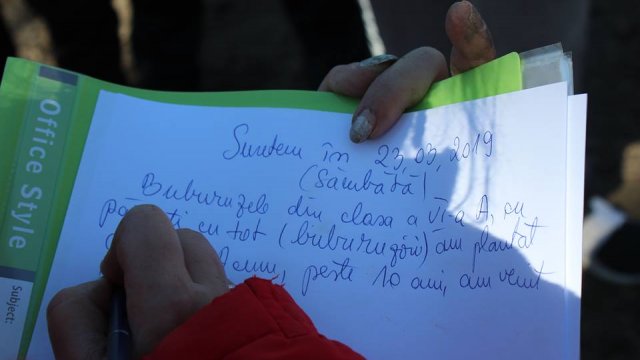 Office Style
Subject:
Suntem în 23,03,2019
(Sâmbătă)
Buburuzele din clasa a VI-a A, cu
cu tot (buburuzoi) am plantat
peste 10 ani, am venit